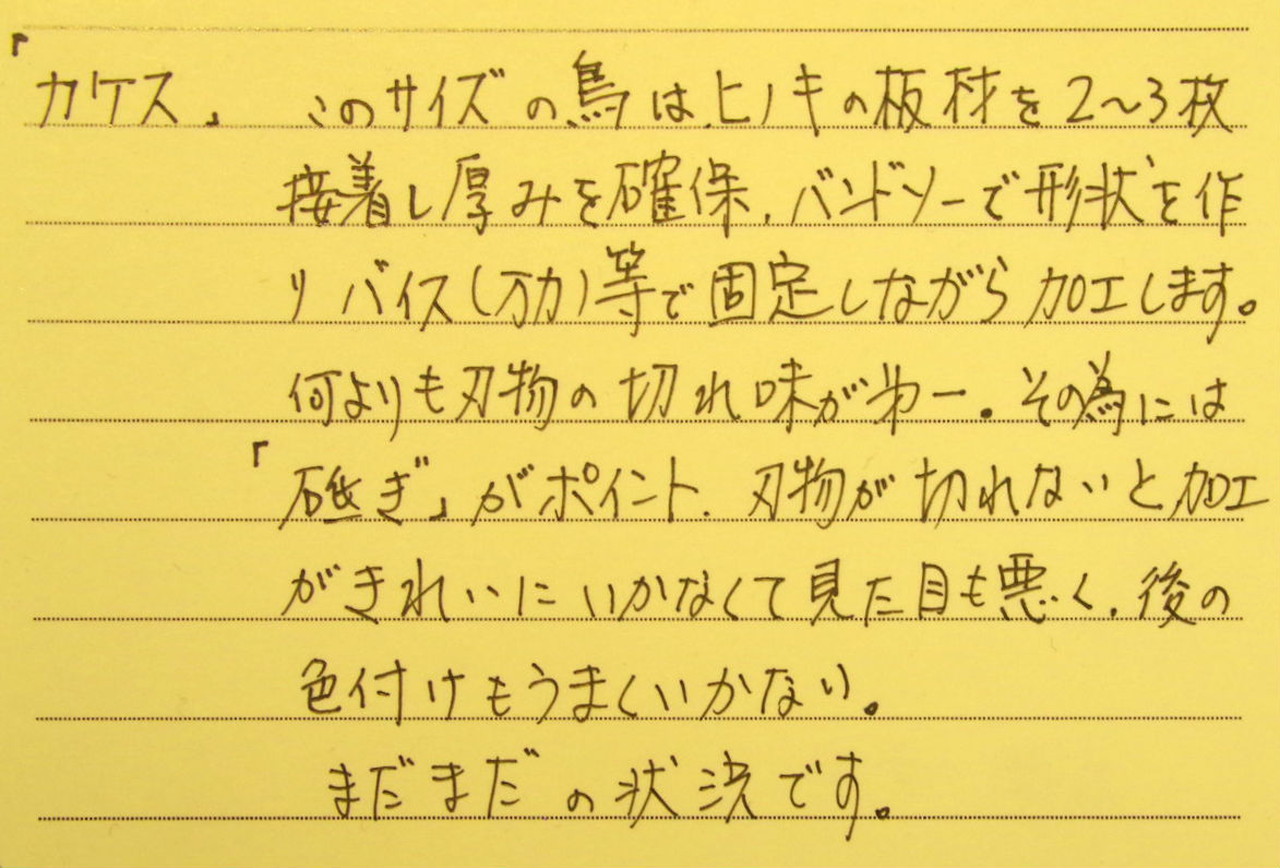 「カケス」 このサイズの鳥はヒノキの板材を2～3枚
接着し厚みを確保、バンドソーで形状を作
り バイス(万力)等で固定しながら加工します。
何よりも刃物の切れ味が㐧一。その為には
「研ぎ」がポイント。刃物が切れないと加工
がきれいにいかなくて見た目も悪く、後の
色付けもうまくいかない。
まだまだの状況です。